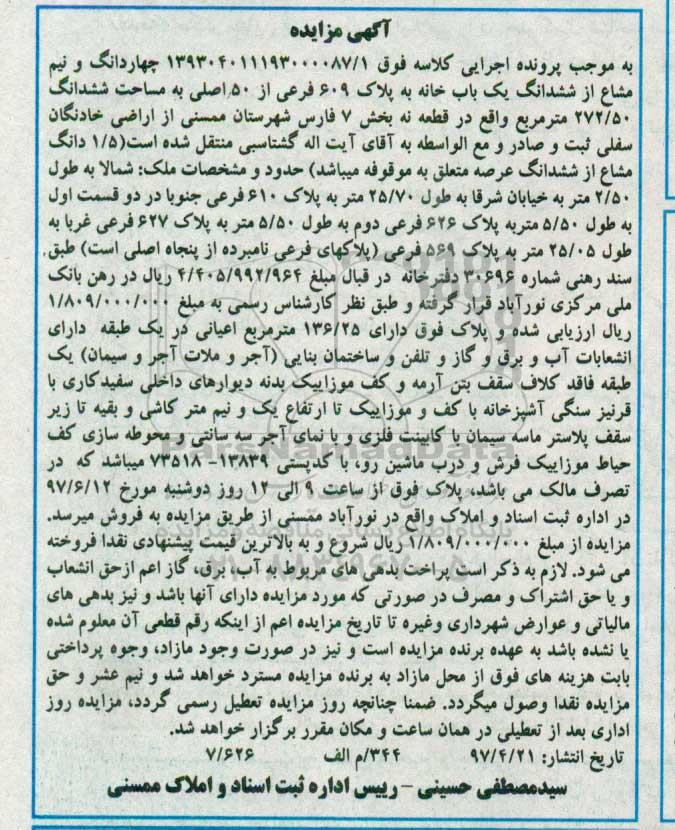 آگهی مزایده
به موجب پرونده اجرایی کلاسه فوق ۱۳۹۳۰۴۰۱۱۱۹۳۰۰۰۰۸۷/۱ چهاردانگ و نیم
مشاع از ششدانگ یک باب خانه به پلاک ۶۰۹ فرعی از ۵۰ اصلی به مساحت ششدانگ
۲۷۲/۵۰ مترمربع واقع در قطعه نه بخش ۷ فارس شهرستان ممسنی از اراضی خادنگان
سفلی ثبت و صادر و مع الواسطه به آقای آیت اله گشتاسبی منتقل شده است(۱/۵ دانگ
مشاع از ششدانگ عرصه متعلق به موقوفه میباشد) حدود و مشخصات ملک: شمالا به طول
۲/۵۰ متر به خیابان شرقا به طول ۲۵/۷۰ متر به پلاک ۶۱۰ فرعی جنوبا در دو قسمت اول
به طول ۵/۵۰ متربه پلاک ۶۲۶ فرعی دوم به طول ۵/۵۰ متر به پلاک ۶۲۷ فرعی غربا به
طول ۲۵/۰۵ متر به پلاک ۵۶۹ فرعی (پلاکهای فرعی نامبرده از پنجاه اصلی است) طبق
سند رهنی شماره ۳۰۶۹۶ دفترخانه در قبال مبلغ ۴/۴۰۵/۹۹۲/۹۶۴ ریال در رهن بانک
ملی مرکزی نورآباد قرار گرفته و طبق نظر کارشناس رسمی به مبلغ ۱/۸۰۹/۰۰۰/۰۰۰
ریال ارزیابی شده و پلاک فوق دارای ۱۳۶/۲۵ مترمربع اعیانی در یک طبقه دارای
انشعابات آب و برق و گاز و تلفن و ساختمان بنایی (آجر و ملات آجر و سیمان) یک
طبقه فاقد کلاف سقف بتن آرمه و کف موزاییک بدنه دیوارهای داخلی سفیدکاری با
قرنیز سنگی آشپزخانه با کف و موزاییک تا ارتفاع یک و نیم متر کاشی و بقیه تا زیر
سقف پلاستر ماسه سیمان با کابینت فلزی و با نمای آجر سه سانتی و محوطه سازی کف
حیاط موزاییک فرش و درب ماشین رو، با کدپستی ۱۳۸۳۹- ۷۳۵۱۸ میباشد که در
تصرف مالک می باشد، پلاک فوق از ساعت ۹ الی ۱۲ روز دوشنبه مورخ ۹۷/۶/۱۲
در اداره ثبت اسناد و املاک واقع در نورآباد ممسنی از طریق مزایده به فروش میرسد.
مزایده از مبلغ ۱/۸۰۹/۰۰۰/۰۰۰ ریال شروع و به بالاترین قیمت پیشنهادی نقدا فروخته
می شود. لازم به ذکر است پراخت بدهی های مربوط به آب، برق، گاز اعم ازحق انشعاب
و یا حق اشتراک و مصرف در صورتی که مورد مزایده دارای آنها باشد و نیز بدهی های
مالیاتی و عوارض شهرداری وغیره تا تاریخ مزایده اعم از اینکه رقم قطعی آن معلوم شده
یا نشده باشد به عهده برنده مزایده است و نیز در صورت وجود مازاد، وجوه پرداختی
بابت هزینه های فوق از محل مازاد به برنده مزایده مسترد خواهد شد و نیم عشر و حق
مزایده نقدا وصول میگردد. ضمنا چنانچه روز مزایده تعطیل رسمی گردد، مزایده روز
اداری بعد از تعطیلی در همان ساعت و مکان مقرر برگزار خواهد شد.
تاریخ انتشار: ۹۷/۴/۲۱ ۳۴۴/م الف ۷/۶۲۶
سیدمصطفی حسینی – رییس اداره ثبت اسناد و املاک ممسنی
ParsNamadData